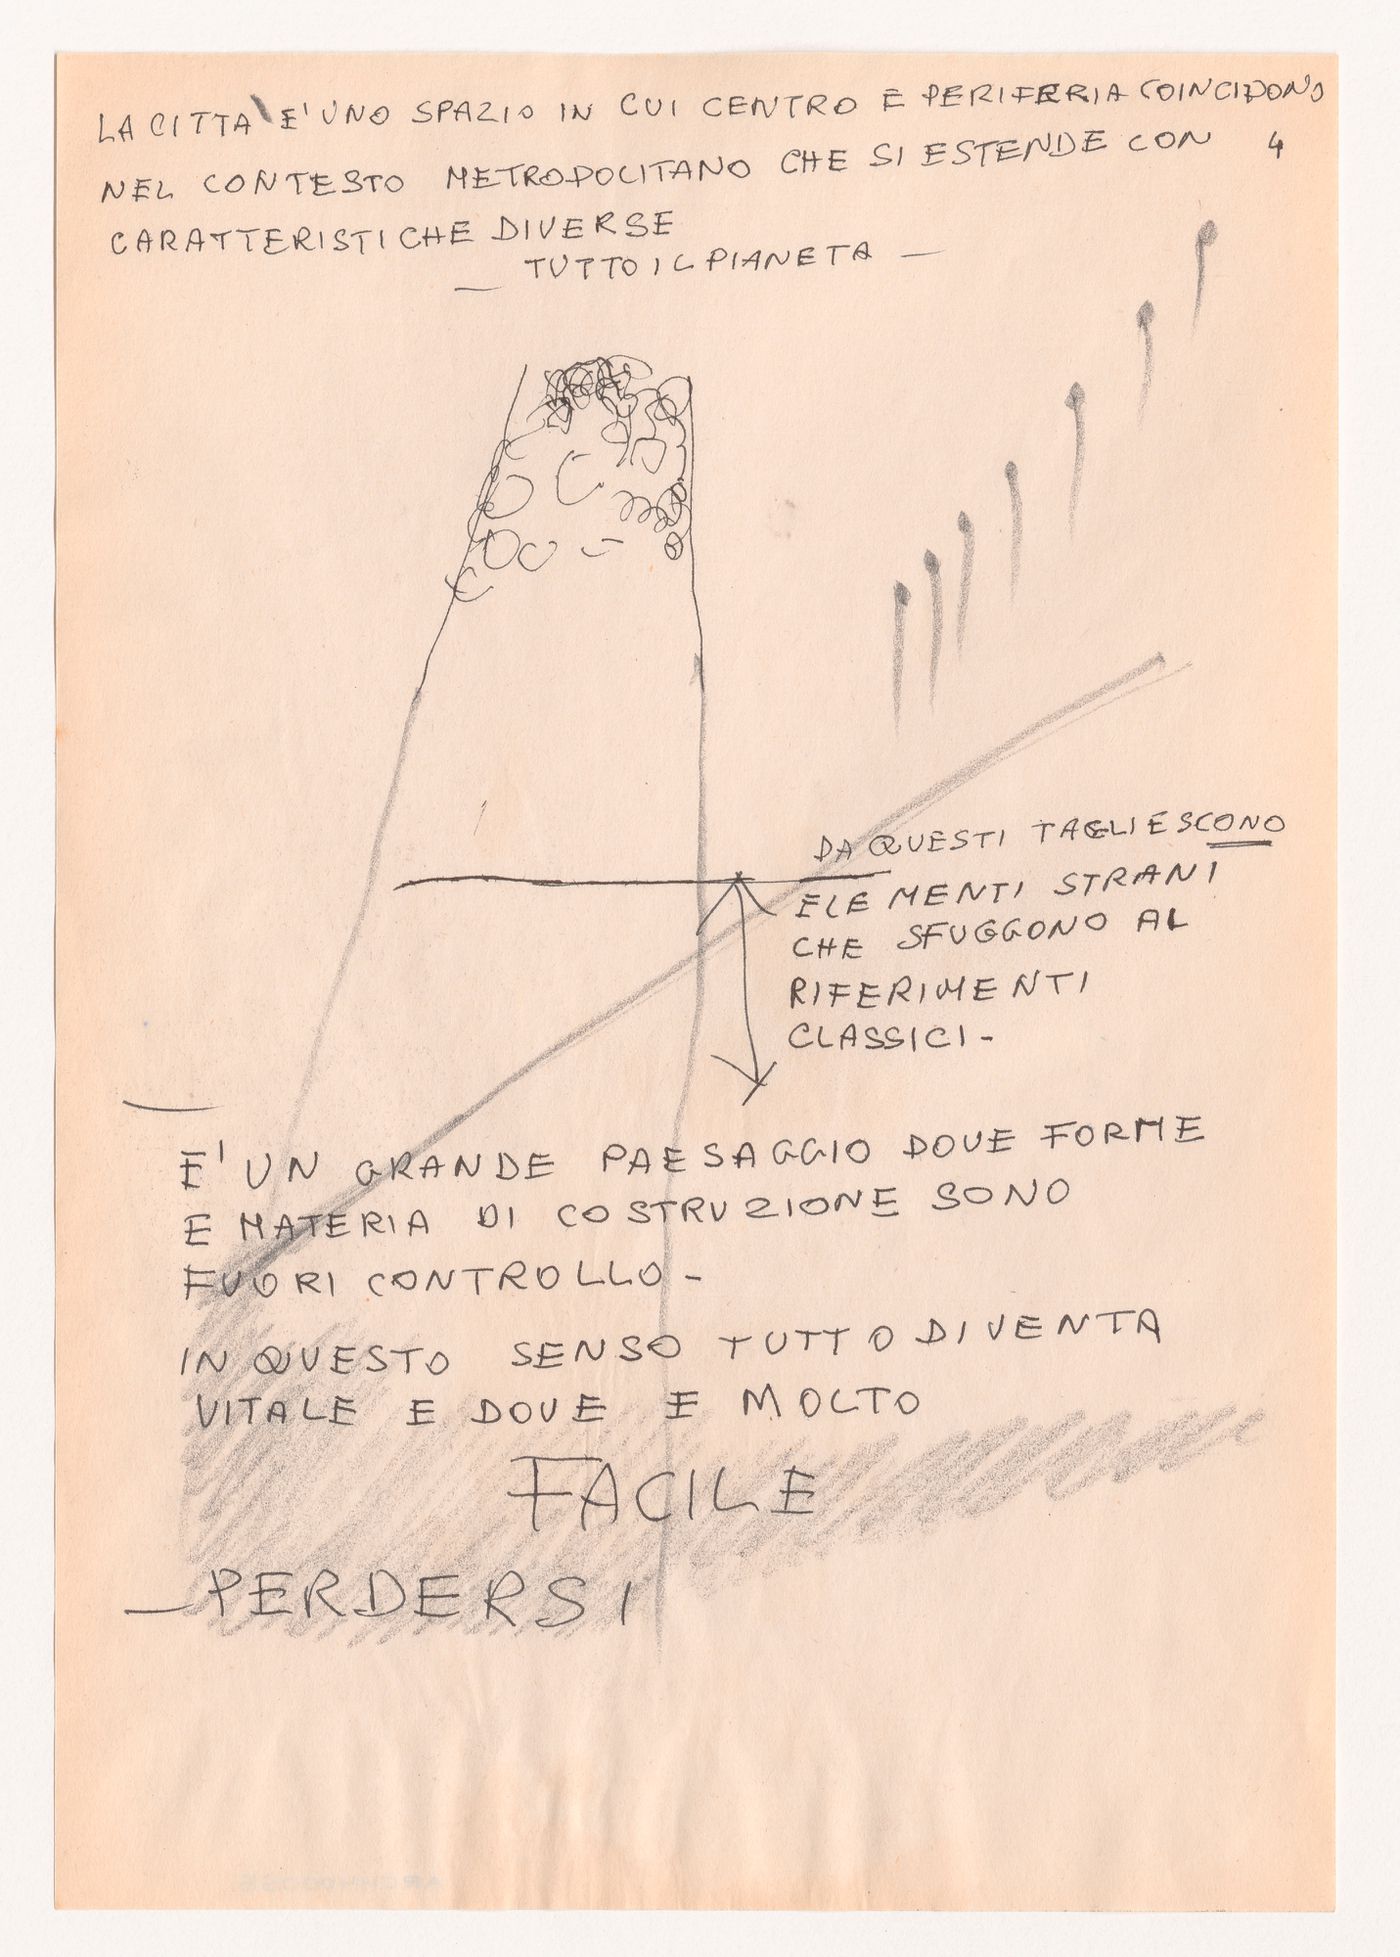 LA CITTA' E' UNO SPAZIO IN CUI CENTRO E PERIFERIA COINCIDONO
NEL CONTESTO METROPOLITANO CHE SI ESTENDE CON
4
CARATTERISTICHE DIVERSE
— TUTTO IL PIANETA —
DA QUESTI TAGLI ESCONO
ELEMENTI STRANI
CHE SFUGGONO AL
RIFERIMENTI
CLASSICI -
E' UN GRANDE PAESAGGIO DOVE FORME
E MATERIA DI COSTRUZIONE SONO
FUORI CONTROLLO -
IN QUESTO SENSO TUTTO DIVENTA
VITALE E DOVE E MOLTO
FACILE
— PERDERSI